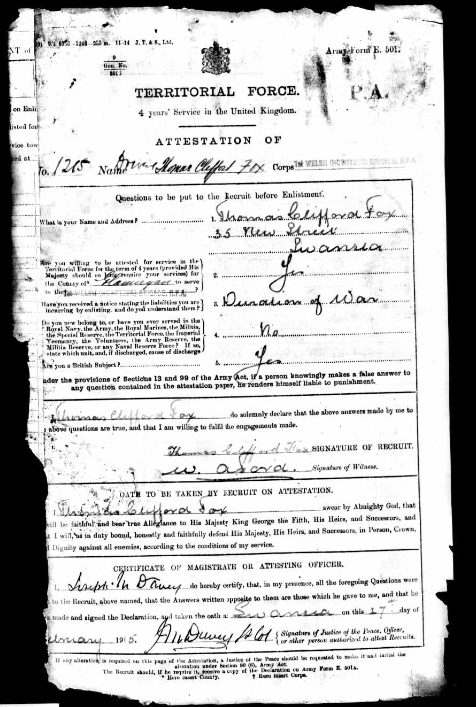 Army Form E. 501.
TERRITORIAL FORCE.
P.A.
4 years' Service in the United Kingdom.
ATTESTATION OF
No. 1265 Name Thomas Clifford Fox Corps
Questions to be put to the Recruit before Enlistment.
What is your Name and Address? 1. Thomas Clifford Fox
35 New Street
Swansea
Are you willing to be attested for service in the
Territorial Force for the term of 4 years (provided His
Majesty should so long require your services) for
the County of to serve
in the
2. Yes
Have you received a notice stating the liabilities you are
incurring by enlisting, and do you understand them?
3. Duration of War
Do you now belong to, or have you ever served in the
Royal Navy, the Army, the Royal Marines, the Militia,
the Special Reserve, the Territorial Force, the Imperial
Yeomanry, the Volunteers, the Army Reserve, the
Militia Reserve, or any Naval Reserve Force? If so,
state which unit, and, if discharged, cause of discharge
4. No
Are you a British Subject? Yes
under the provisions of Sections 13 and 99 of the Army Act, if a person knowingly makes a false answer to
any question contained in the attestation paper, he renders himself liable to punishment.
Thomas Clifford Fox do solemnly declare that the above answers made by me to
above questions are true, and that I am willing to fulfil the engagements made.
Thomas Clifford Fox SIGNATURE OF RECRUIT.
Signature of Witness.
OATH TO BE TAKEN BY RECRUIT ON ATTESTATION.
I, Thomas Clifford Fox swear by Almighty God, that
will be faithful and bear true Allegiance to His Majesty King George the Fifth, His Heirs, and Successors, and
I will, as in duty bound, honestly and faithfully defend His Majesty, His Heirs, and Successors, in Person, Crown,
Dignity against all enemies, according to the conditions of my service.
CERTIFICATE OF MAGISTRATE OR ATTESTING OFFICER.
I, Joseph M Davey do hereby certify, that, in my presence, all the foregoing Questions were
to the Recruit, above named, that the Answers written opposite to them are those which he gave to me, and that he
made and signed the Declaration, and taken the oath at Swansea on this 17th day of
February 1915.
Signature of Justice of the Peace, Officer,
or other person authorised to attest Recruits.
If any alteration is required on this page of the Attestation, a Justice of the Peace should be requested to make it and initial the
alteration under Section 80 (6), Army Act.
The Recruit should, if he require it, receive a copy of the Declaration on Army Form E. 501A.
* Here insert County. † Here insert Corps.